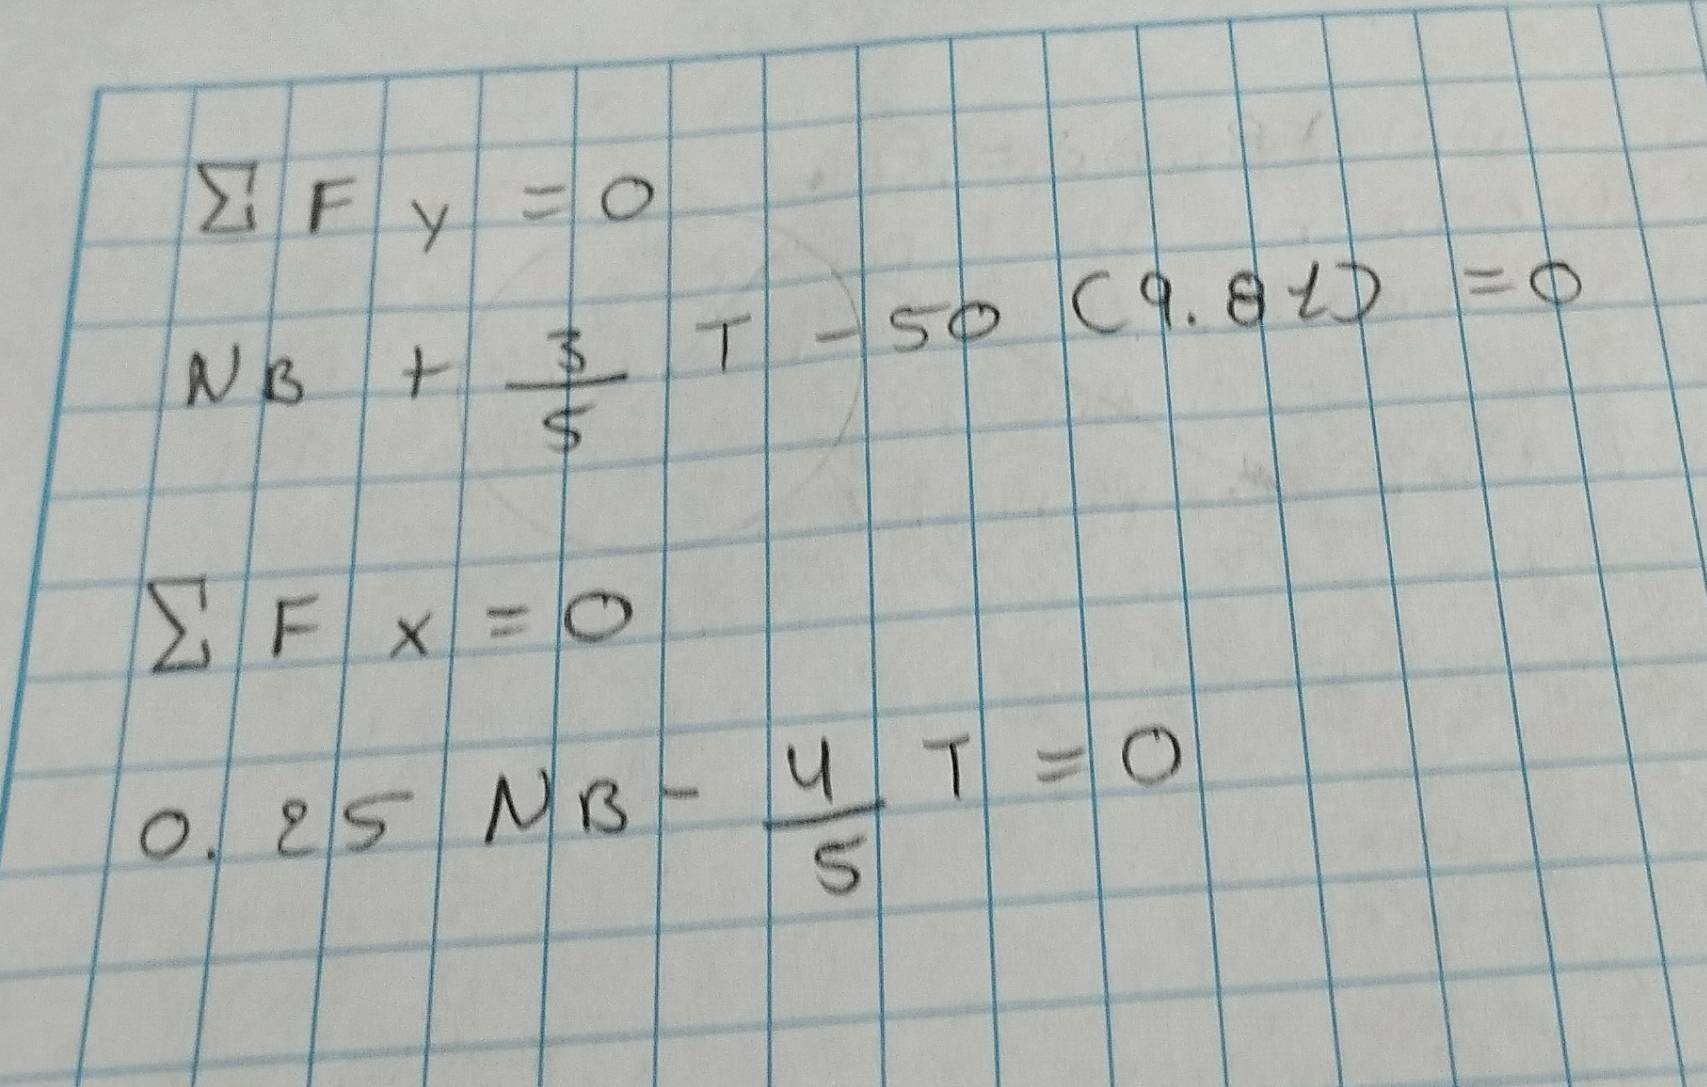 Σ F y = 0
NB + 3/5 T - 50 (9.81) = 0
Σ F x = 0
0.25 NB - 4/5 T = 0